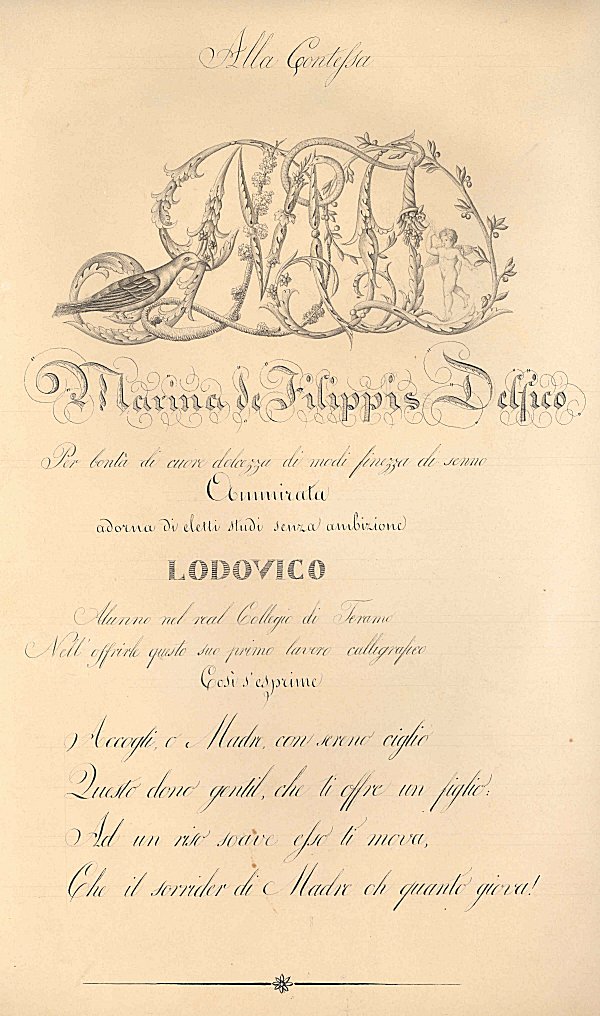 Alla Contessa
Marina de Filippis Delfico
Per bontà di cuore dolcezza di modi finezza di senno
Ammirata
adorna di eletti studi senza ambizione
LODOVICO
Alunno nel real Collegio di Teramo
Nell' offrirle questo suo primo lavoro calligrafico
Così s'esprime
Accogli, o Madre, con sereno ciglio
Questo dono gentil, che ti offre un figlio:
Ad un riso soave esso ti mova,
Che il sorrider di Madre oh quanto giova!